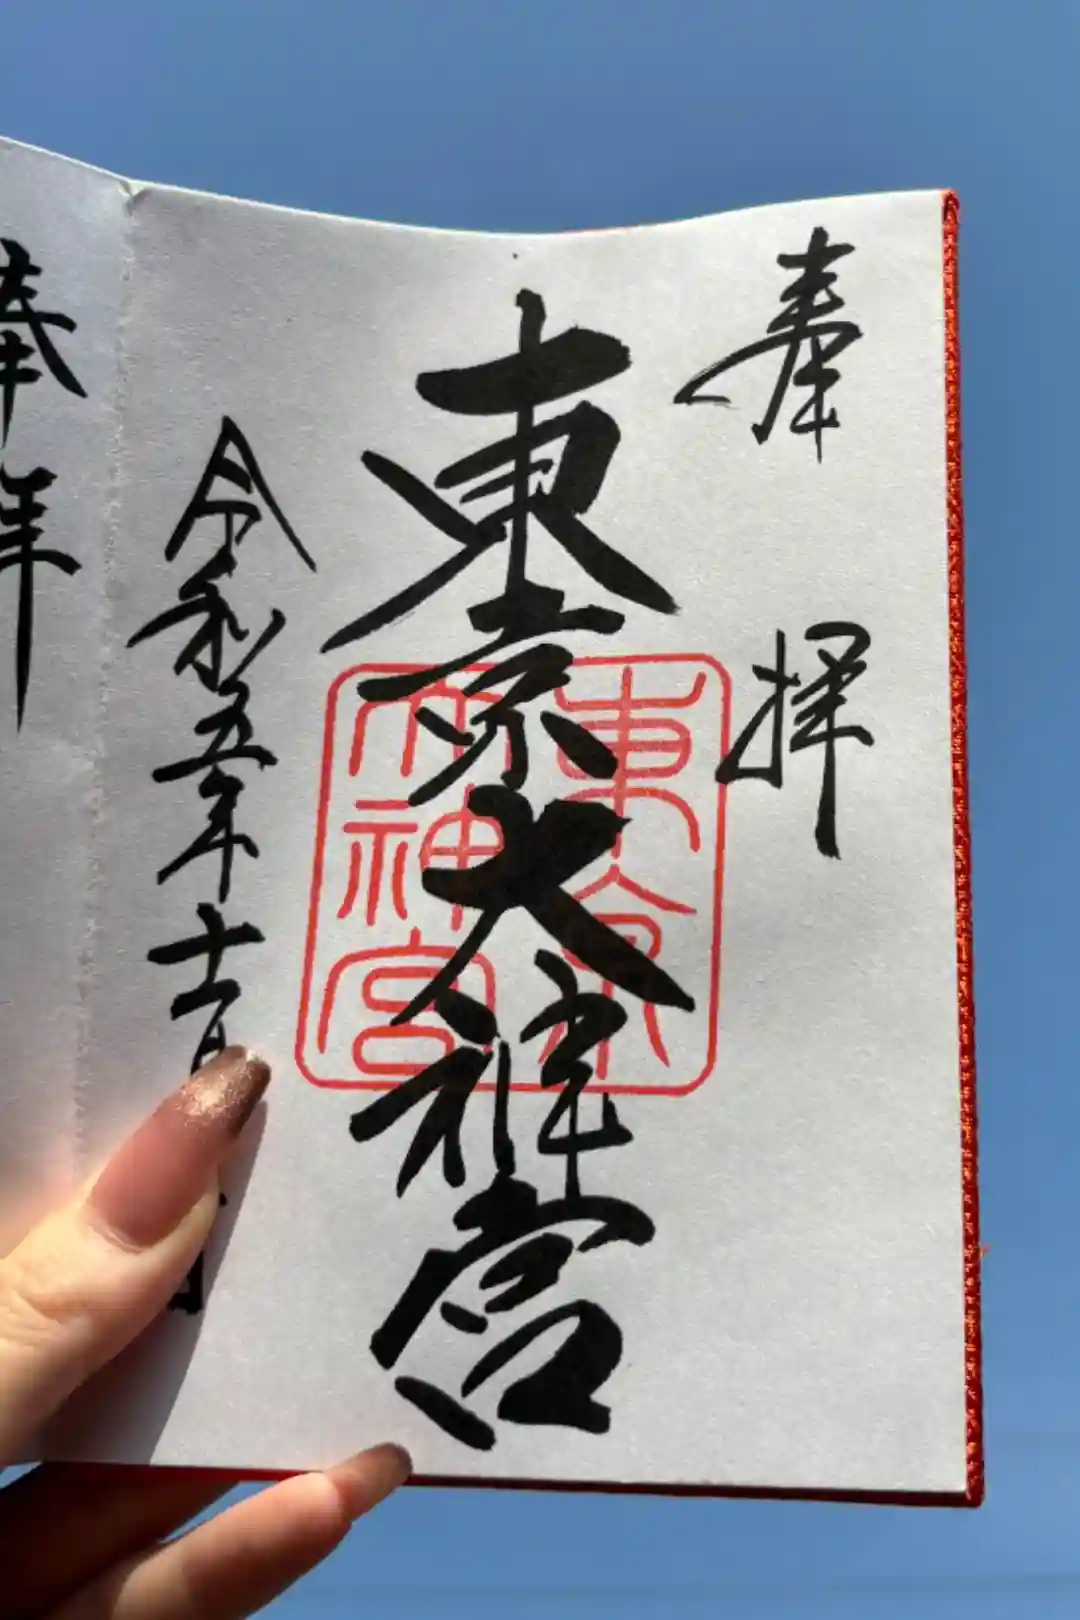 奉拝
東京大神宮
東京大神宮
令和五年十二月